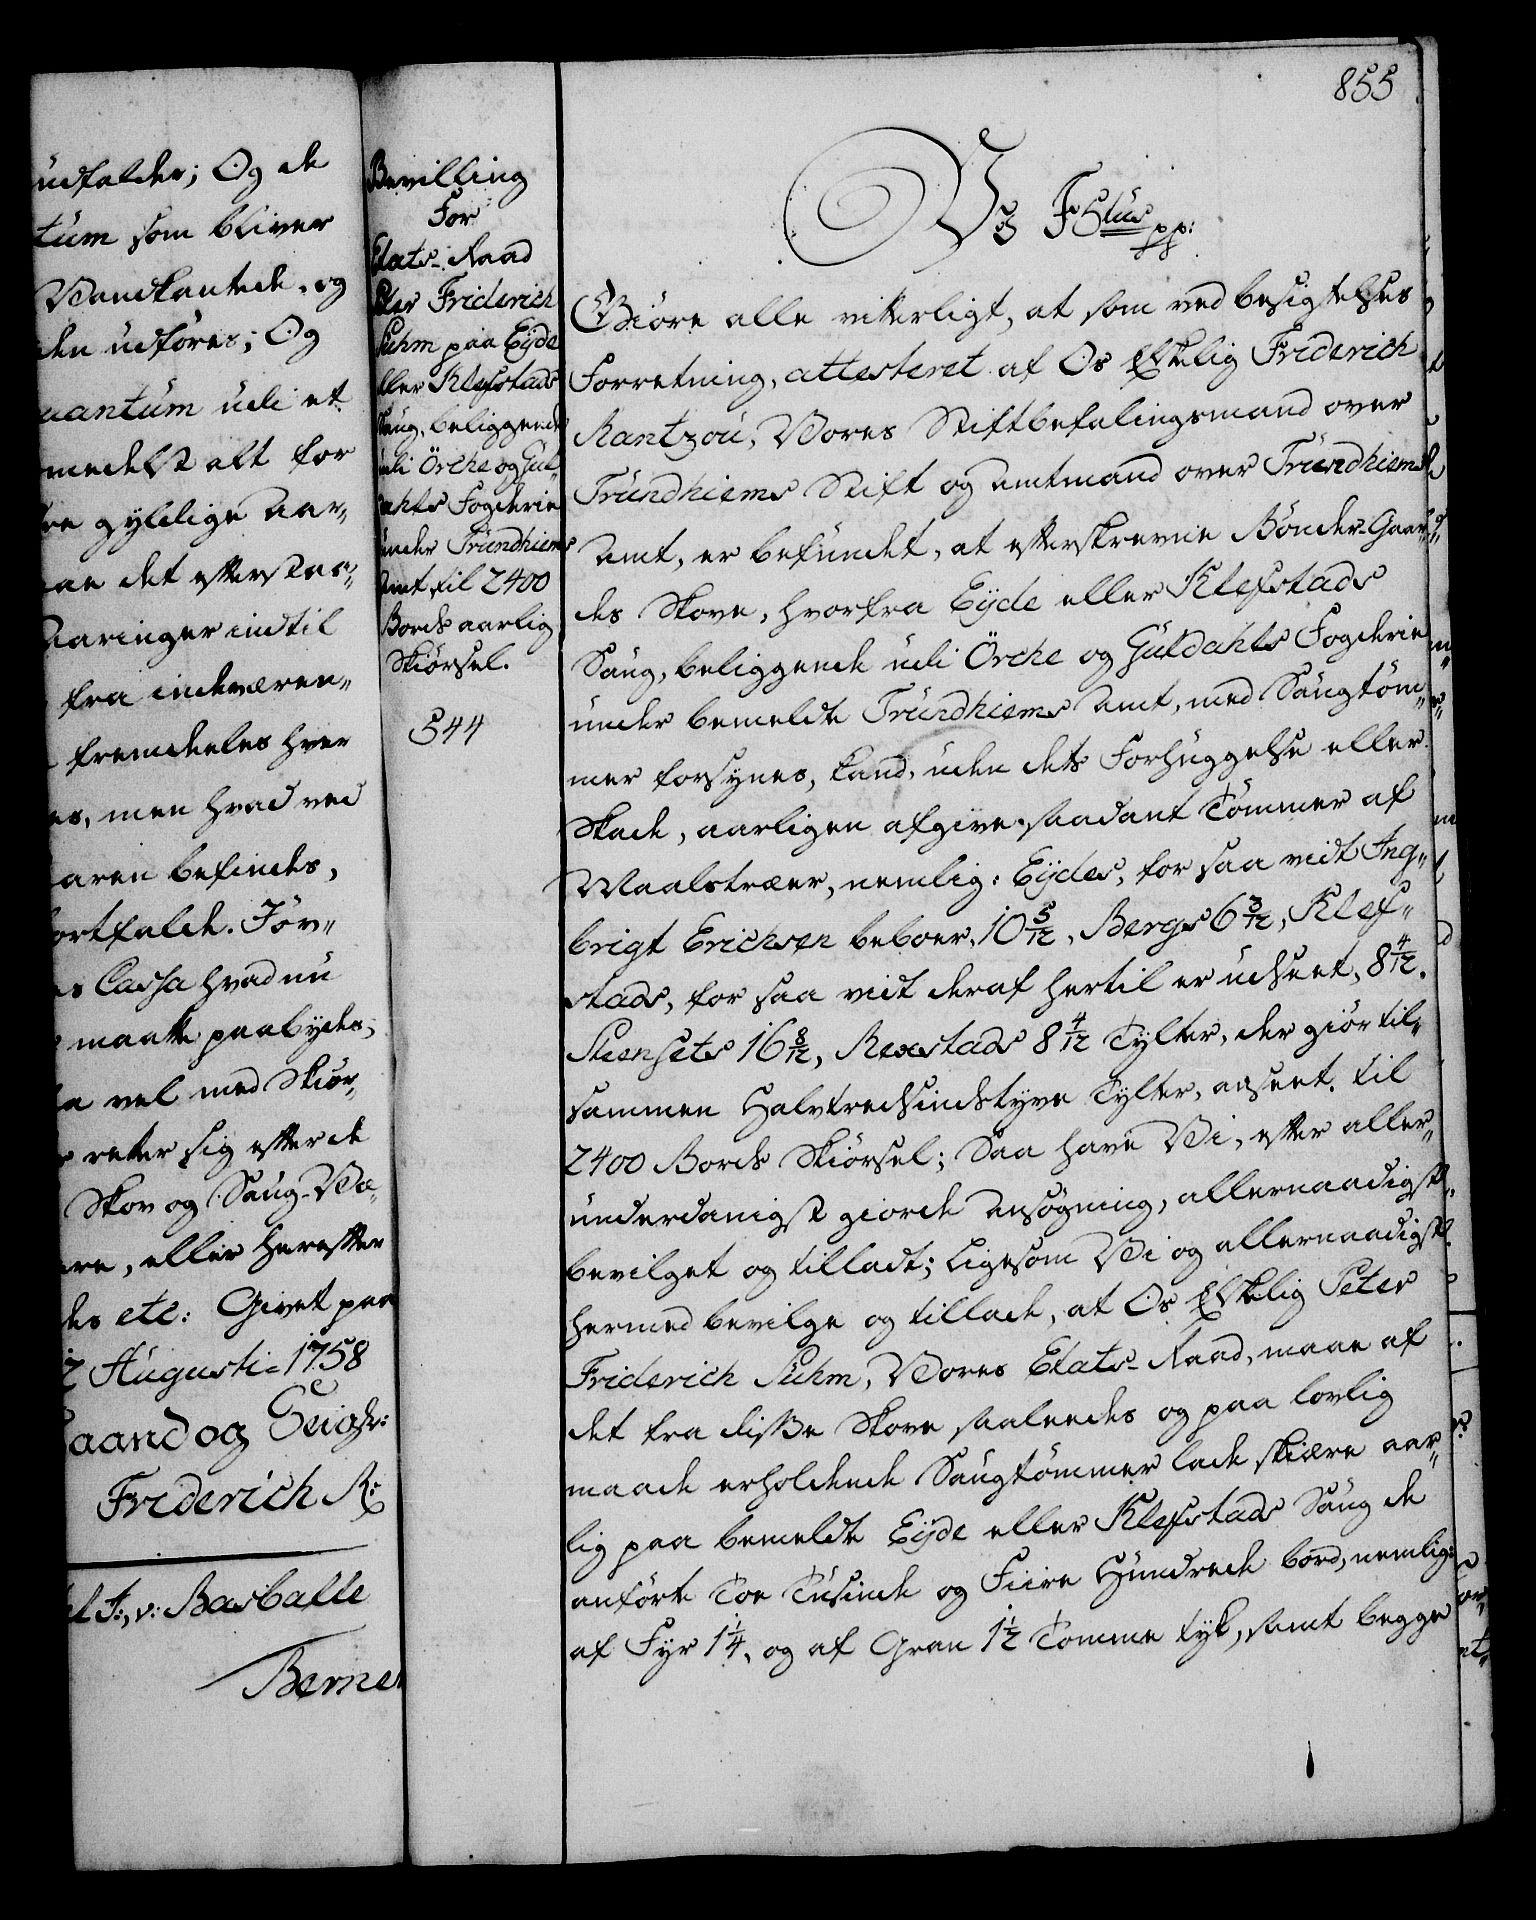 855
udfalder; Og de
tum som bliver
Vandkantede, og
den udføres; Og
uantum udi et
medelst alt for
re gyldige Aar„
aae det efterstaa„
Aaringer indtil
fra indeværen„
fremdeeles hver
es, men hvad ved
aren befindes,
ortfalde. Jøv„
es Cassa hvad nu
maatte paabydes,
a vel med Skiør„
retter sig efter de
Skov og Saug-Væ„
ere, eller herefter
des etc: Givet paa
Augusti 1758
aand og
Friderich R:
v: Barballe
Berne
Bevilling
For
Etats-Raad
Peter Friderich
Suhm paa Eyde
eller Klefstads
Saug, beliggende
udi Örche og Gul„
dahls Fogderie
under Trundhiems
Amt til 2400
Bords aarlig
Skiørsel.
544
Vj F5tus pp:
Giøre alle vitterligt, at som ved besigtelses
Forretning, attesteret af Os Elskelig Friderich
Rantzou, Vores Stiftbefalingsmand over
Trundhiems Stift og Amtmand over Trundhiems
Amt, er befundet, at efterskrevne Bønder-Gaar„
des Skove, hvorfra Eyde eller Klefstads
Saug, beliggende udi Örche og Guldahls Fogderie
under bemeldte Trundhiems Amt, med Saugtøm„
mer forsynes, kand, uden dets Forhuggelse eller
Skade, aarligen afgive saadant Tømmer af
Maalstræer, nemlig: Eydes, for saa vidt Ing„
brigt Erichsen beboer, 10 5/12, Bergs 6 3/12, Klef„
stads, for saa vidt deraf hertil er udseet, 8 4/12,
Steensets 16 8/12, Rexstads 8 4/12 Tylter, der giør til„
sammen Halvtredsindstyve Tylter, anseet til
2400 Bords Skiørsel; Saa have Vi, efter aller„
underdanigst giorde Ansøgning, allernaadigst
bevilget og tilladt; Ligesom Vi og allernaadigst
hermed bevilge og tillade, at Os Elskelig Peter
Friderich Suhm, Vores Etats-Raad, maae af
det fra disse Skove saaledes og paa lovlig
maade erholdende Saugtømmer lade skiære aar„
lig paa bemeldte Eyde eller Klefstads Saug de
anførte Toe Tusinde og Fiire Hundrede bord, nemlig:
af Fyr 1 1/4, og af Gran 1 1/2 Tomme tyk, samt begge